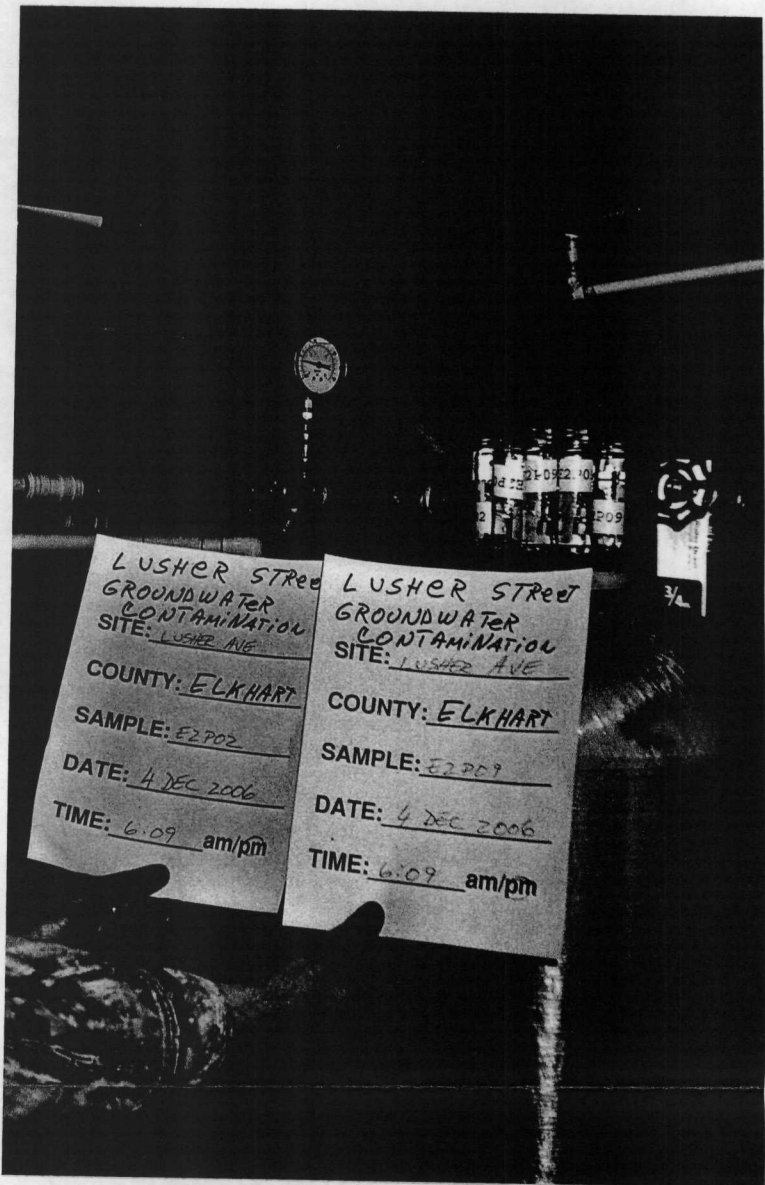 LUSHER STREE
GROUNDWATER
CONTAMINATION
SITE: LUSHER AVE
COUNTY: ELKHART
SAMPLE: E2P02
DATE: 4 DEC 2006
TIME: 6:09 am/pm
LUSHER STREET
GROUNDWATER
CONTAMINATION
SITE: LUSHER AVE
COUNTY: ELKHART
SAMPLE: E2P09
DATE: 4 DEC 2006
TIME: 6:09 am/pm
E2P09
3/4